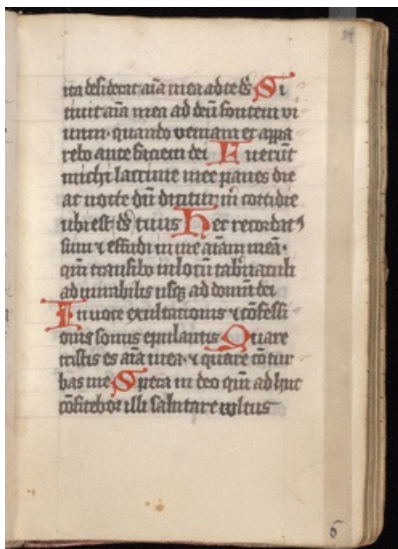 ita desiderat aīa mea ad te dś Si
tiuit aīa mea ad deū fontem vi
uum· quando veniam et appa
rebo ante faciem dei Fuerūt
michi lacrime mee panes die
ac nocte dū dicitur m̄ cottidie
ubi est dś tuus Hec recordat᾽
sum ⁊ effudi in me aīam meā·
qm̄ transibo in locū tab̄naculi
admirabilis usq; ad domū dei
In uoce exultationis ⁊ cōfessi
onis sonus epulantis Quare
tristis es aīa mea· ⁊ quare cō tur
bas me Spera in deo qm̄ ad huc
cōfitebor illi salutare vultus
6